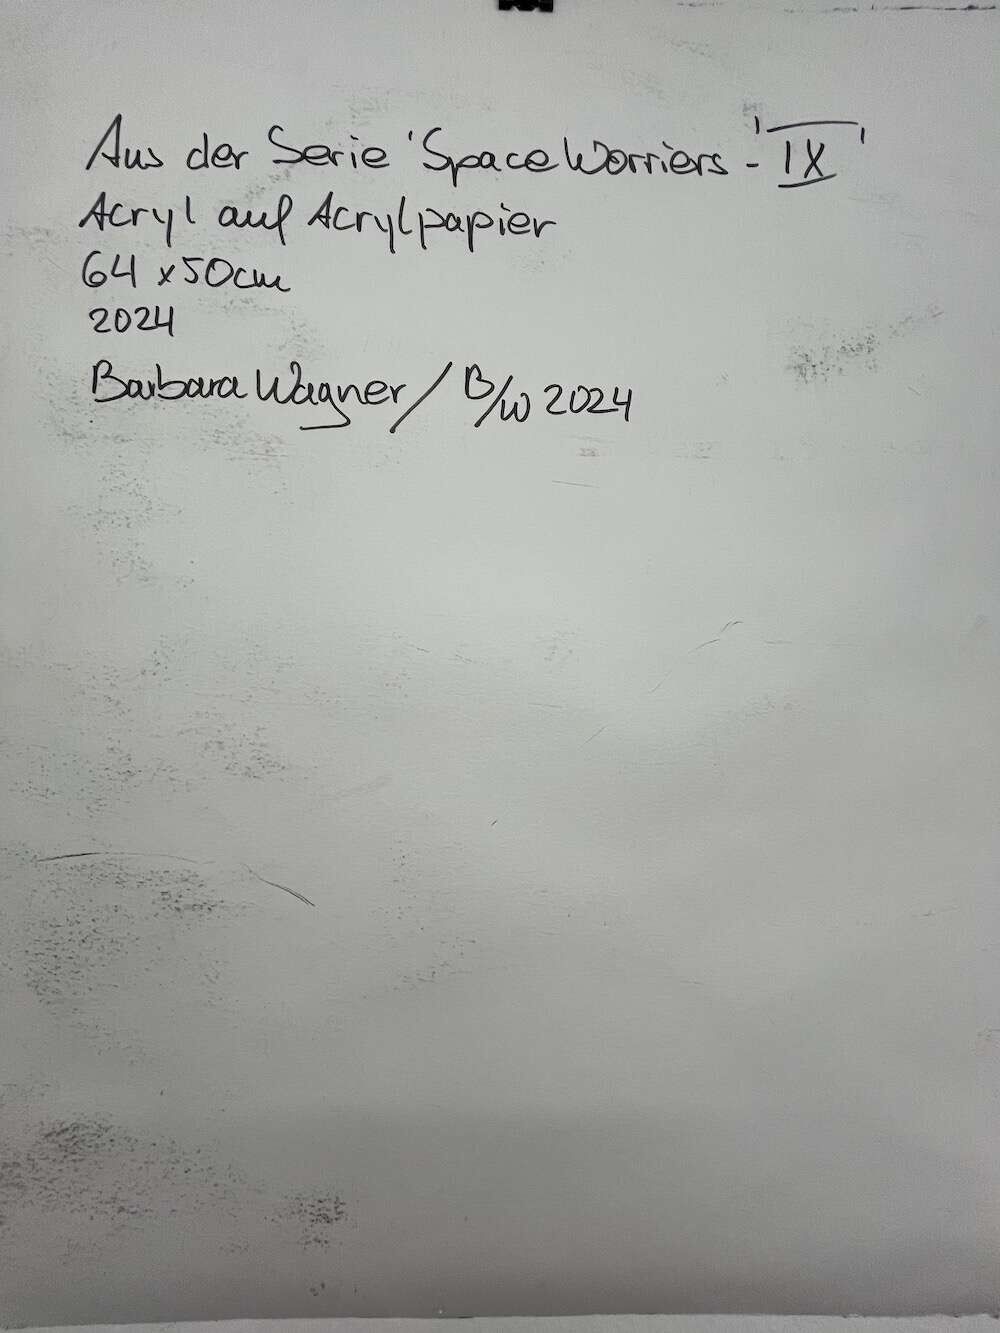 Aus der Serie 'Space Worriers - IX'
Acryl auf Acrylpapier
64 x 50cm
2024
Barbara Wagner / B/W 2024